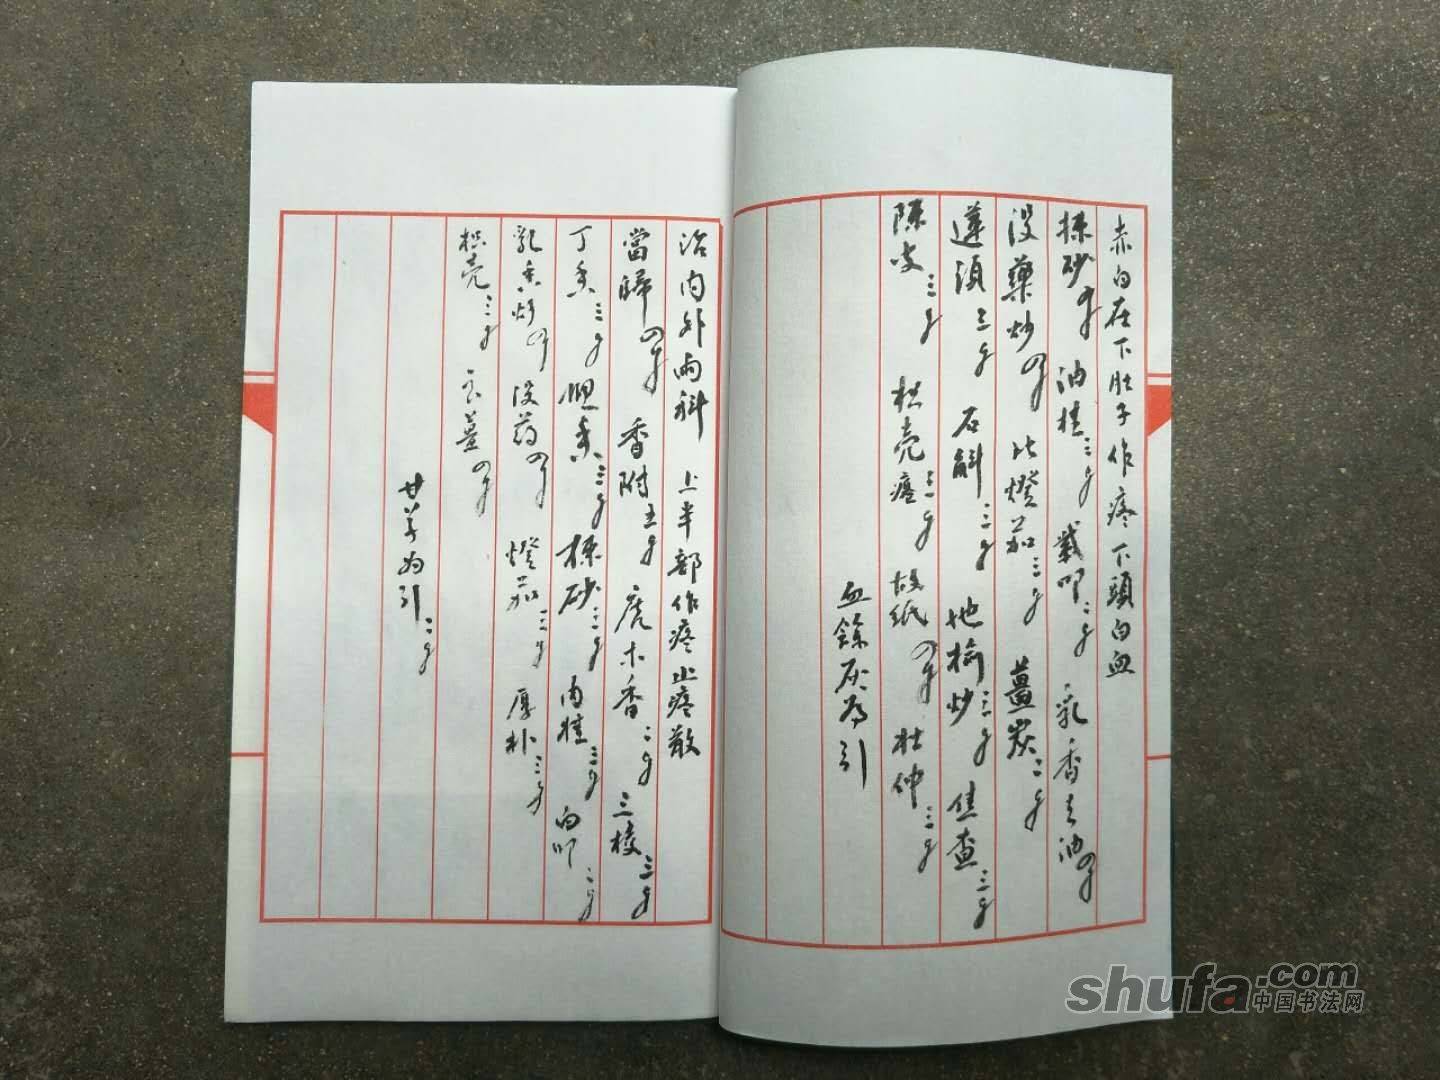 赤白在下肚子作疼下頭白血
楝砂 油桂三 叩二 乳香去油
沒藥炒 比燈茄三 薑炭二
蓮須三 石斛三 地榆炒三 焦查三
陳皮三 枳壳三 故纸 杜仲三
血餘灰為引
治内外兩科 上半部作疼止疼散
當歸 香附五 广木香二 三棱三
丁香三 香三 楝砂三 肉桂三 白叩二
乳香炒 没药 燈茄三 厚朴三
枳壳三 良薑
甘草为引二
shufa.com
中国书法网